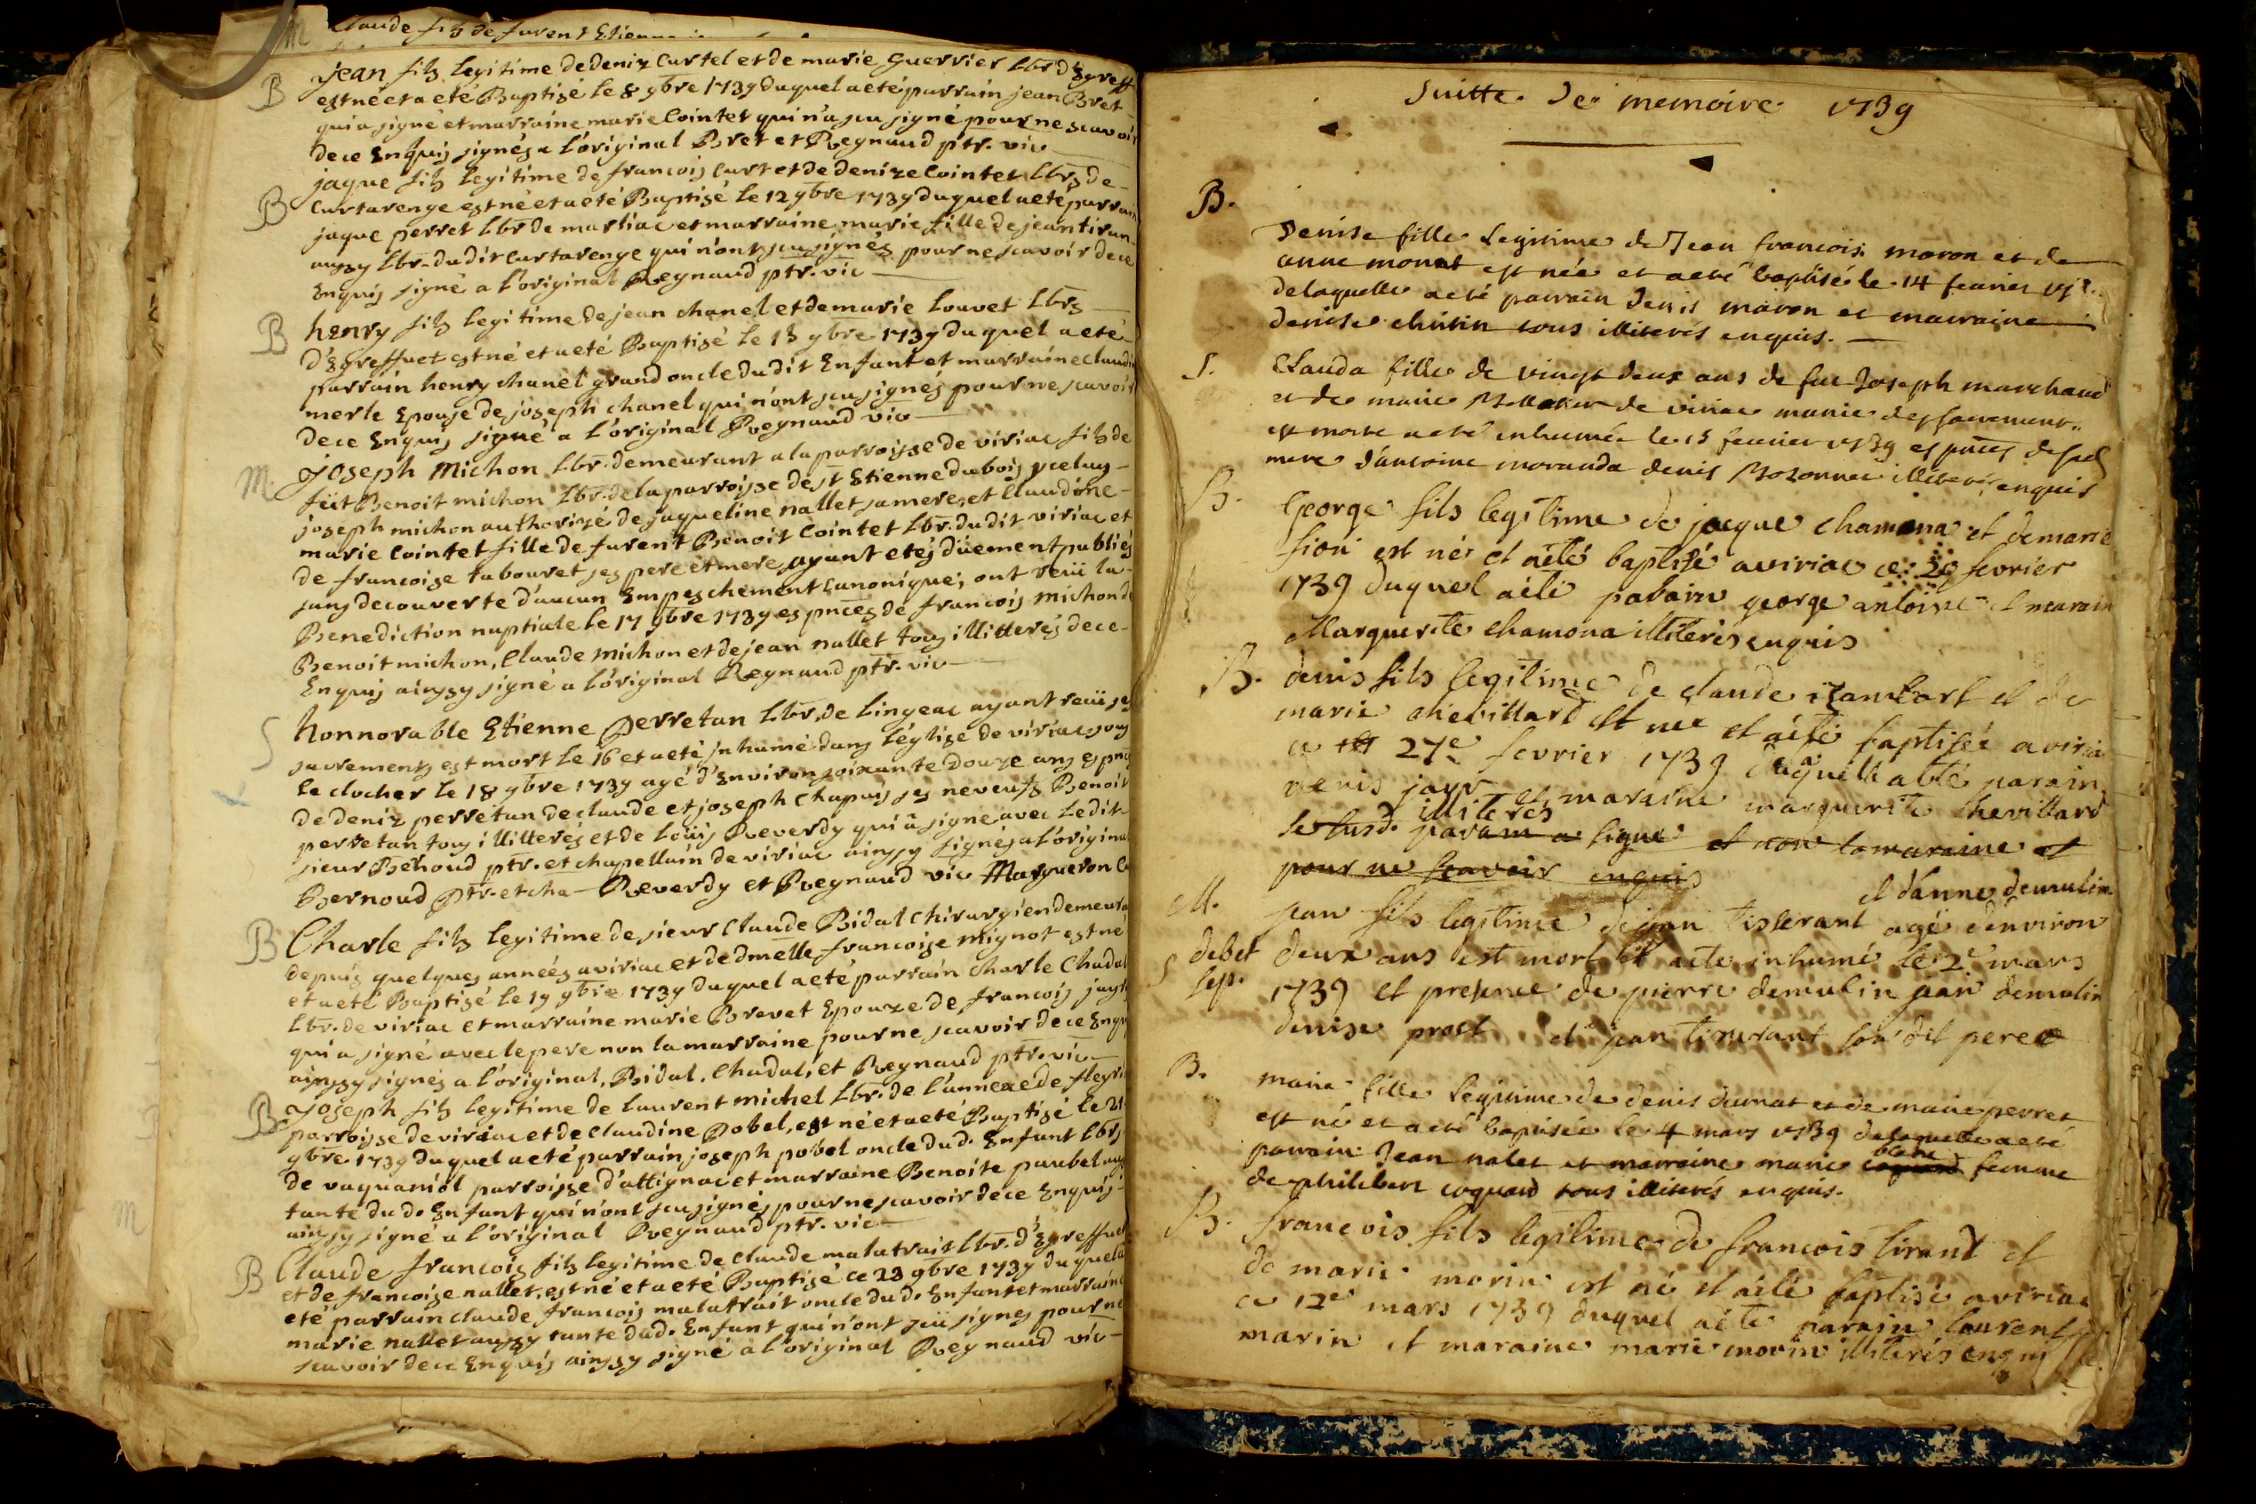 M Claude fils de furent Etienne
B jean fils legitime de deniz Curtel et de marie Guerrier Lbr d'Egreff
est né et a eté Baptisé le 8 9bre 1739 duquel a eté parrain jean Bret
qui a signé et marraine marie Cointet qui n'a scu signé pour ne scavoir
de ce Enquis signés a l'original Bret et Regnaud ptr. vic
jaque fils legitime de francois Curt et de denize Cointet Lbrs de
B Curtarenge est né et a eté Baptisé le 12 9bre 1739 duquel a eté parrain
jaque perret Lbr de marliac et marraine marie fille de jean tiran
aussy Lbr. dudit Curtarenge qui n'ont scu signés pour ne scavoir de ce
Enquis signé a l'original Regnaud ptr. vic
B henry fils legitime de jean chanel et de marie louvet Lbrs
d'Egreffuet est né et a eté Baptisé le 13 9bre 1739 duquel a eté
parrain henry chanel grand oncle dudit Enfant et marraine claudine
merle Epouse de joseph chanel qui n'ont scu signés pour ne scavoir
de ce Enquis signé a l'original Regnaud vic
M. joseph Michon Lbr. demeurant a la parroisse de viriac fils de
feüt Benoit michon Lbr. de la parroisse de st Etienne dubois yceluy
joseph michon authorizé de jaqueline nallet sa mere, et Claudine
marie Cointet fille de furent Benoit Cointet Lbr. dudit viriac et
de francoise tabouret ses pere et mere, ayant etés düement publiés
sans decouverte d'aucun Empeschement canonique, ont reiü la
Benediction nuptiale le 17 9bre 1739 es pnces de francois michon de
Benoit michon, Claude michon et de jean nallet tous illitterés de ce
Enquis ainssy signé a l'original Regnaud ptr. vic
S honnorable Etienne Perretan Lbr. de lingeac ayant reiü ses
sacrements est mort le 16 et a eté Inhumé dans l'église de viriac sous
le clocher le 18 9bre 1739 agé d'Environ soixante douze ans es pnces
de deniz perretan de claude et joseph Chapuis ses neveuts Benoit
perretan tous illitterés et de loüis Reverdy qui a signe avec ledit
sieur Behoud ptr. et chapellain de viriac ainssy signés a l'original
Bernoud Ptr. et cha— Reverdy et Regnaud vic Margueron C
B Charle fils legitime de sieur Claude Bidal Chirurgien demeurant
depuis quelques années a viriac et de dmelle francoise mignot est né
et a eté Baptisé le 19 9bre 1739 duquel a eté parrain Charle Chadal
Lbr. de viriac et marraine marie Brevet Epouze de francois jayr
qui a signé avec le pere non la marraine pour ne scavoir de ce Enquis
ainssy signés a l'original, Bidal, Chadal, et Regnaud ptr. vic
B joseph fils legitime de laurent michel Lbr. de l'annexe de fleyria
parroisse de viriac et de Claudine Pobel, est né et a eté Baptisé le 21
9bre 1739 duquel a eté parrain joseph pobel oncle dud. Enfant Lbr
de vaquamol parroisse d'attignac et marraine Benoite paubel aussy
tante dud. Enfant qui n'ont scu signés pour ne scavoir de ce Enquis
ainssy signé a l'original Regnaud ptr. vic
B Claude francois fils legitime de claude malatrait Lbr. d'Egreffuet
et de francoise nallet, est né et a eté Baptisé ce 23 9bre 1739 duquel a
eté parrain claude francois malatrait oncle dud. Enfant et marraine
marie nallet aussy tante dud. Enfant qui n'ont scü signes pour ne
scavoir de ce Enquis ainssy signé a l'original Regnaud vic
Suitte De memoire 1739
B.
Denise fille legitime de Jean francois moron et de
anne monat est née et a eté baptisée le 14 feurier
de laquelle a eté parrain Denis moron et marraine
denise chutin tous illiterés enquis.
S. Clauda fille de vingt deux ans de fue Joseph marchand
et de marie de viriac munie des sacrements
est morte a eté inhumée le 15 feurier 1739 es pnces de sad
mere d'antoine moranda denis Bozonnet illiteré enquis
B. George fils legitime de jacque chamona et de marie
fion est né et a eté baptisé a viriac ce 29 fevrier
1739 duquel a eté parain george antoine et marain
Marguerite chamona illiteres enquis
B. denis fils legitime de claude et de
marie chevillard est nee et a eté baptisée a viria
ce 27e fevrier 1739 duquelle a eté parain
denis jayr et maraine marguerite chevillard
illiteres
le susd. parain a signe et non la maraine et
pour ne scavoir enquis
et d'anne demulin
M. jean fils legitime de jean tisserant agé d'environ
debet deux ans est mort et a ete inhumé le 2e mars
S sep. 1739 et presence de pierre demulin jean demulin
denise prost et jean tisserant son dit pere
B. marie fille legitime de denis dumat et de marie perret
est né et a eté baptisée le 4 mars 1739 de laquelle a eté
blanc
parrain Jean nalet et marraine marie coquard femme
de philibert coquard tous illiterés enquis.
B. francois fils legitime de francois tirand et
de marie morin est né et a eté baptisé a viriac
ce 12e mars 1739 duquel a ete parain laurent
marin et maraine marie morin illiterés enquis